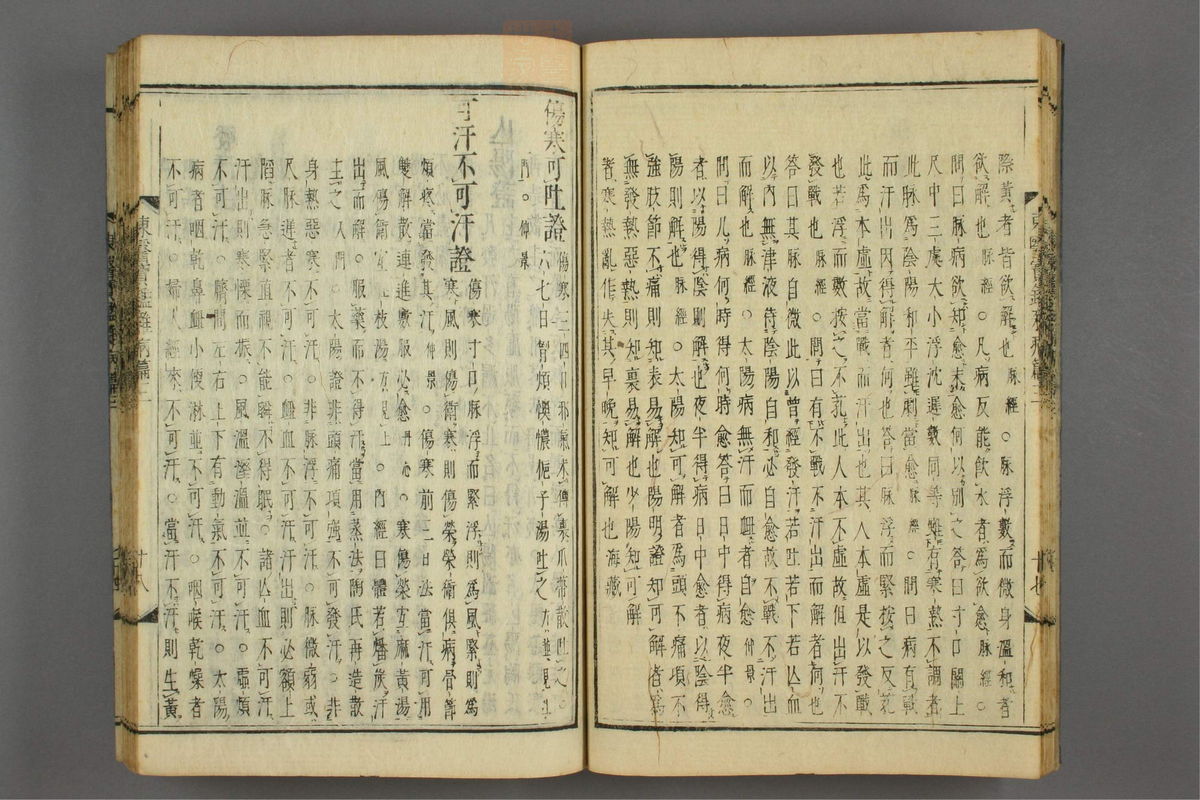 際黃者皆欲解也脉經○脉浮數而微身溫和者
欲解也脉經○凡病反能飮水者爲欲愈脉經○
問曰脉病欲知愈未愈何以別之答曰寸口關上
尺中三處大小浮沈遲數同等雖有寒熱不調者
此脉爲陰陽和平雖劇當愈脉經○問曰病有戰
而汗出因得解者何也答曰脉浮而緊按之反芤
此爲本虛故當戰而汗出也其人本虛是以發戰
也若浮而數按之不芤此人本不虛故但出汗不
發戰也脉經○問曰有不戰不汗出而解者何也
答曰其脉自微此以曾經發汗若吐若下若亾血
以內無津液待陰陽自和必自愈故不戰不汗出
而解也脉經○太陽病無汗而衄者自愈仲景○
問曰凡病何時得何時愈答曰日中得病夜半愈
者以陽得陰則解也夜半得病日中愈者以陰得
陽則解也脉經○太陽知可解者爲頭不痛項不
強肢節不痛則知表易解也陽明證知可解者爲
無發熱惡熱則知裏易解也少陽知可解
者寒熱亂作夫其早晚知可解也海藏
傷寒可吐證
傷寒三四日邪氣未傳裏瓜蒂散吐之○
六七日胷煩懊憹梔子湯吐之方並見上
門○仲景
可汗不可汗證
傷寒寸口脉浮而緊浮則爲風緊則爲
寒風則傷衛寒則傷榮榮衛俱病骨節
煩疼當發其汗仲景○傷寒前三日法當汗可用
雙解散連進數服必愈丹心○寒傷榮宜麻黃湯
風傷衛宜桂枝湯方見上○內經曰體若燔炭汗
出而解○服藥而不得汗當用蒸法陶氏再造散
主之入門○太陽證非頭痛項強不可發汗○非
身熱惡寒不可汗○非脉浮不可汗○脉微弱或
尺脉遲者不可汗○衄血不可汗汗出則必額上
䧟脉急緊直視不能瞬不得眠○諸亾血不可汗
汗出則寒慄而振○風溫濕溫並不可汗○虛煩
不可汗○臍間左右上下有動氣不可汗○太陽
病者咽乾鼻衄小便淋並不可汗○咽喉乾燥者
不可汗○婦人經來不可汗○當汗不汗則生黃